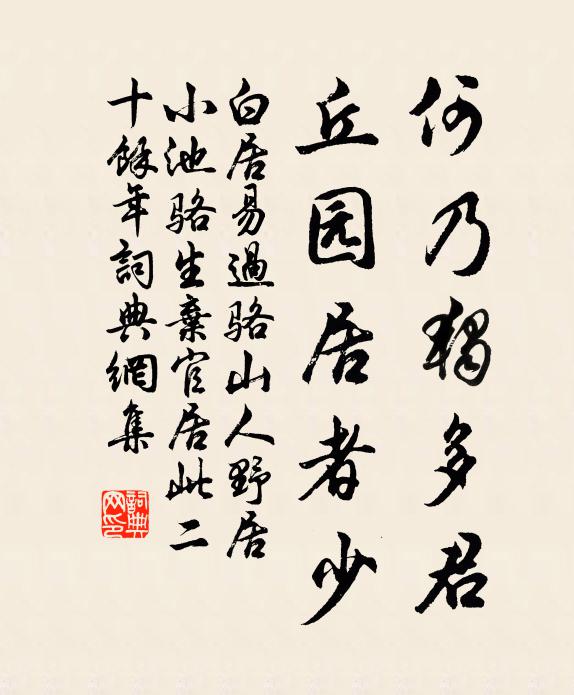 何乃獨多君
丘园居者少
白居易過骆山人野居
小池骆生棄官居此二
十餘年詞典網集
詞典
网印